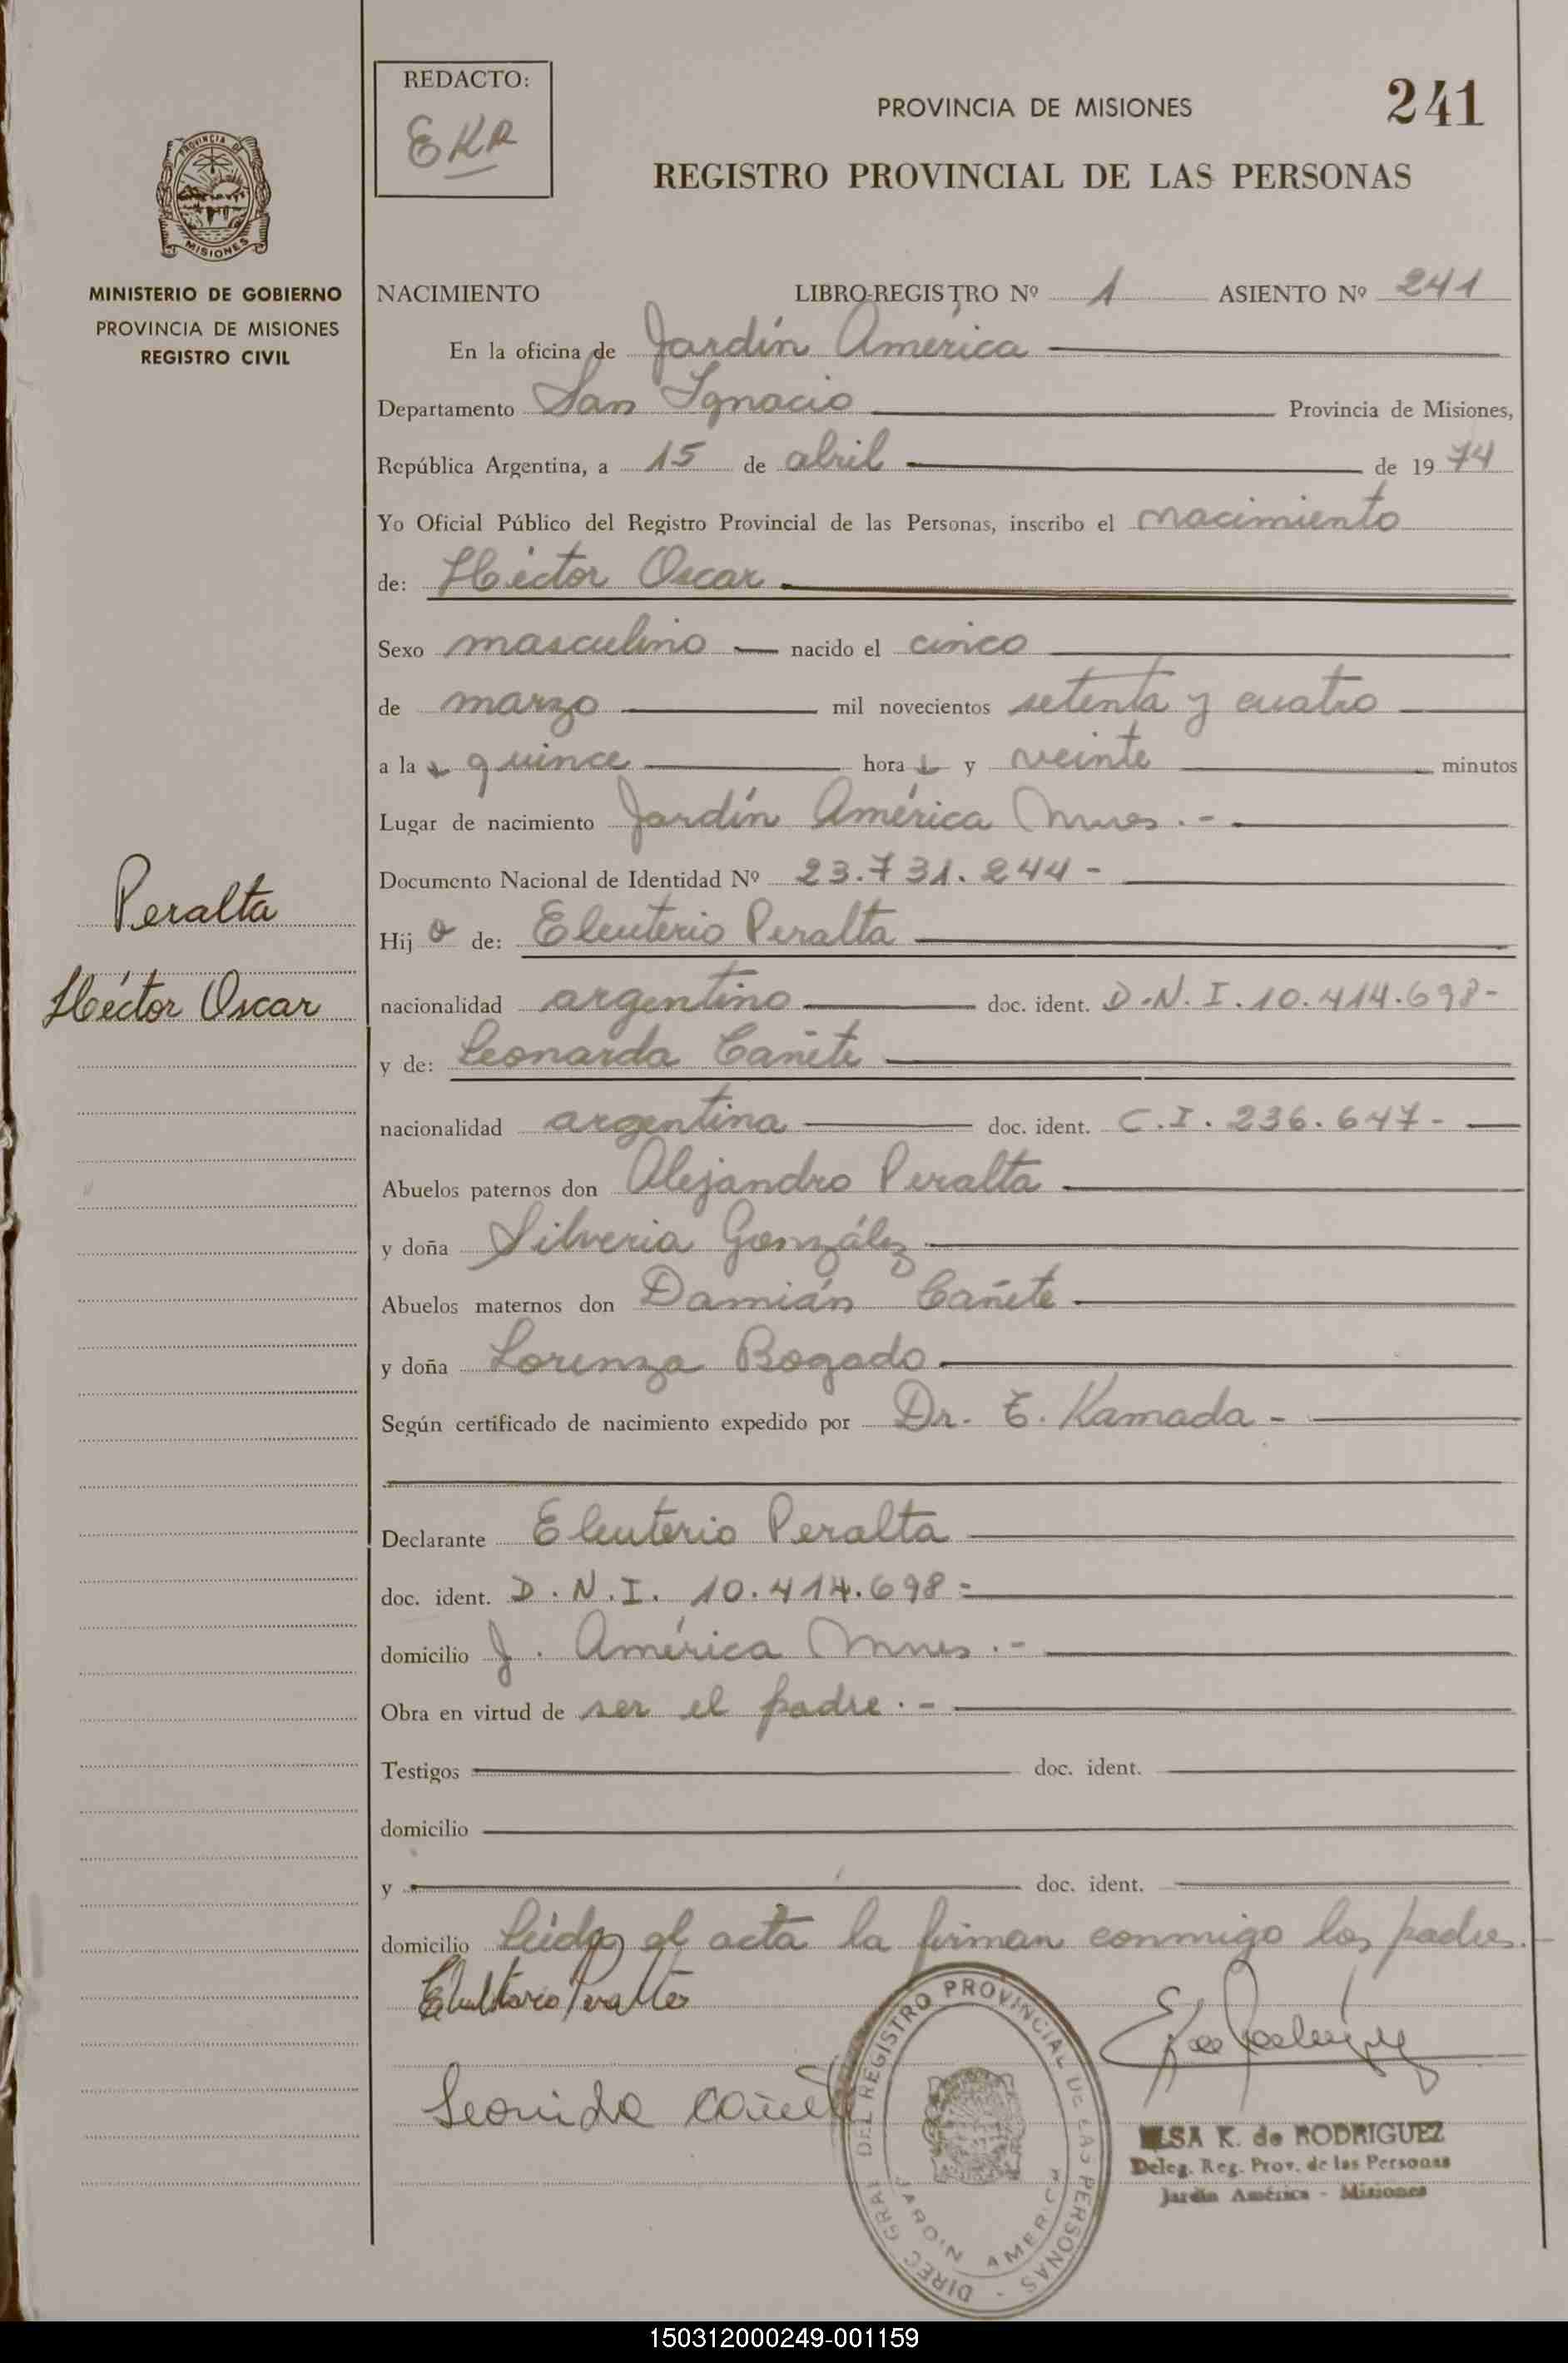 REDACTO:
EKR
PROVINCIA DE MISIONES
241
REGISTRO PROVINCIAL DE LAS PERSONAS
PROVINCIA DE
MISIONES
MINISTERIO DE GOBIERNO
PROVINCIA DE MISIONES
REGISTRO CIVIL
NACIMIENTO LIBRO-REGISTRO Nº 1 ASIENTO Nº 241
En la oficina de Jardín América
Departamento San Ignacio Provincia de Misiones,
República Argentina, a 15 de abril de 1974
Yo Oficial Público del Registro Provincial de las Personas, inscribo el nacimiento
de: Héctor Oscar
Sexo masculino nacido el cinco
de marzo mil novecientos setenta y cuatro
a las quince horas y veinte minutos
Lugar de nacimiento Jardín América Mnes.-
Documento Nacional de Identidad Nº 23.731.244-
Peralta
Hijo de: Eleuterio Peralta
Héctor Oscar
nacionalidad argentino doc. ident. D.N.I. 10.414.698-
y de: Leonarda Cañete
nacionalidad argentina doc. ident. C.I. 236.647-
Abuelos paternos don Alejandro Peralta
y doña Silveria González
Abuelos maternos don Damián Cañete
y doña Lorenza Bogado
Según certificado de nacimiento expedido por Dr. E. Kamada-
Declarante Eleuterio Peralta
doc. ident. D.N.I. 10.414.698=
domicilio J. América Mnes.-
Obra en virtud de ser el padre.-
Testigos doc. ident.
domicilio
y doc. ident.
domicilio Leída el acta la firman conmigo los padres.-
Peralta
Leonida Cañete
DIREC. GRAL. DEL REGISTRO PROVINCIAL DE LAS PERSONAS -
JARDIN AMERICA
ELSA K. de RODRIGUEZ
Deleg. Reg. Prov. de las Personas
Jardín América - Misiones
150312000249-001159